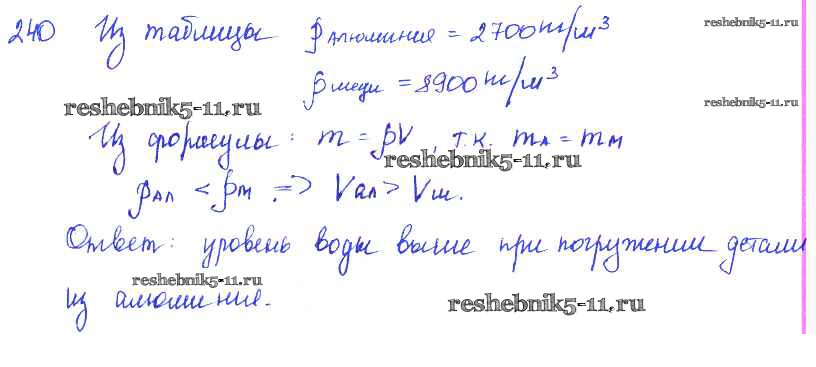 240 Из таблицы ρ алюминия = 2700 кг/м³
reshebnik5-11.ru
ρ меди = 8900 кг/м³
reshebnik5-11.ru
reshebnik5-11.ru
Из формулы: m = ρV, т.к. mА = mм
reshebnik5-11.ru
ρАл < ρм => Vал > Vм.
Ответ: уровень воды выше при погружении детали
reshebnik5-11.ru
из алюминия.
reshebnik5-11.ru